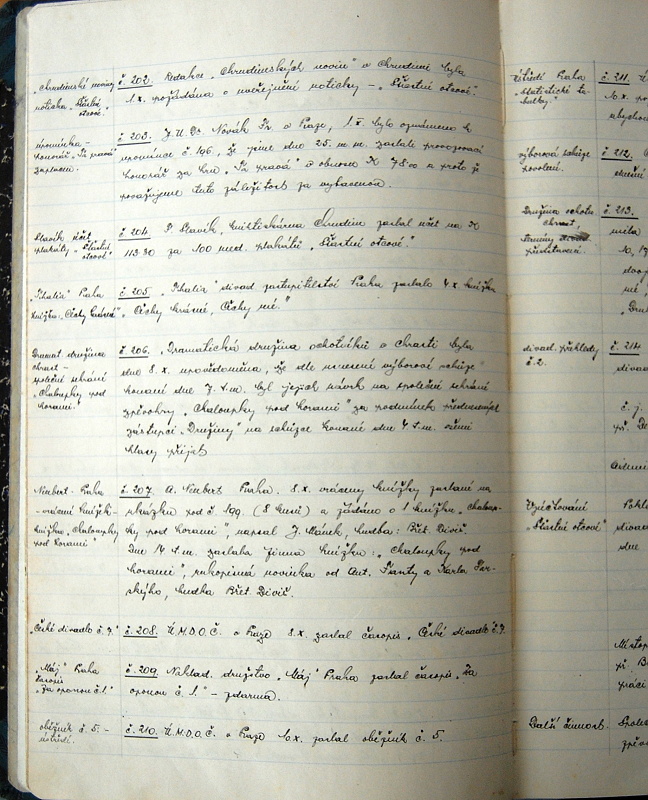 Chrudimské noviny
notička "Šťastní
otcové."
č. 202. Redakce "Chrudimských novin" v Chrudimi byla
1.x. požádána o uveřejnění notičky – "Šťastní otcové".
upomínka –
honorář "Ta pravá"
zaplacen.
č. 203. J.U.Dr. Novák Fr. v Praze, 1.x. bylo oznámeno k
upomínce č. 196, že jsme dne 25. m. m. zaslali provozovací
honorář za hru "Ta pravá" v obnosu K 78·00 a proto že
považujeme tuto záležitost za vyřízenou.
Slavík účet
plakáty "Šťastní
otcové"
č. 204. P. Slavík, knihtiskárna Chrudim zaslal účet na K
113·30 za 100 med. plakátů "Šťastní otcové".
"Thalia" Praha
knížka "Čechy krásné"
č. 205. "Thalia" divad. zastupitelství Praha zaslalo 4x knížku
"Čechy krásné, Čechy mé."
Dramat. družina
Chrast –
společné sehrání
"Chaloupky pod
horami."
č. 206. "Dramatická družina ochotníků v Chrasti byla
dne 8. x. uvědoměna, že dle usnesení výborové schůze
konané dne 7. t. m. byl jejich návrh na společné sehrání
zpěvohry "Chaloupky pod horami" za podmínek přednesených
zástupci "Družiny" na schůzce konané dne 4. t. m. všemi
hlasy přijat
Neubert – Praha
– vrácení knížek –
knížka "Chaloupky
pod horami"
č. 207. A. Neubert Praha. 8.x. vráceny knížky zaslané na
ukázku pod č. 199. (8 kusů) a žádáno o 1 knížku "Chaloup-
ky pod horami", napsal J. Mánek, hudba: Břet. Diviš.
Dne 14. t. m. zaslala firma knížku: "Chaloupky pod
horami", rukopisná novinka od Ant. Fianty a Karla Tar-
ského, hudba Břet. Diviš.
"České divadlo č. 7."
č. 208. Ú.M.D.O.Č. v Praze 8.x. zaslal časopis "České divadlo č. 7.
"Máj" Praha
časopis
"Za oponou č. 1."
č. 209. Naklad. družstvo "Máj" Praha zaslal časopis "Za
oponou č. 1." – zdarma.
oběžník č. 5. –
ústředí.
č. 210. Ú.M.D.O.Č. v Praze 10.x. zaslal oběžník č. 5.
Ústředí Praha
"statistické ta-
bulky."
č. 211.
10.x.
abychom
výborová schůze
svolení.
č. 212.
Družina ochotn.
Chrast.
termíny
představení.
č. 213.
měla
divad. přehledy
č. 2.
č. 214
divad
č. j.
př.
"Šťastní otcové"
divad
dne
při
práci
Další činnost.